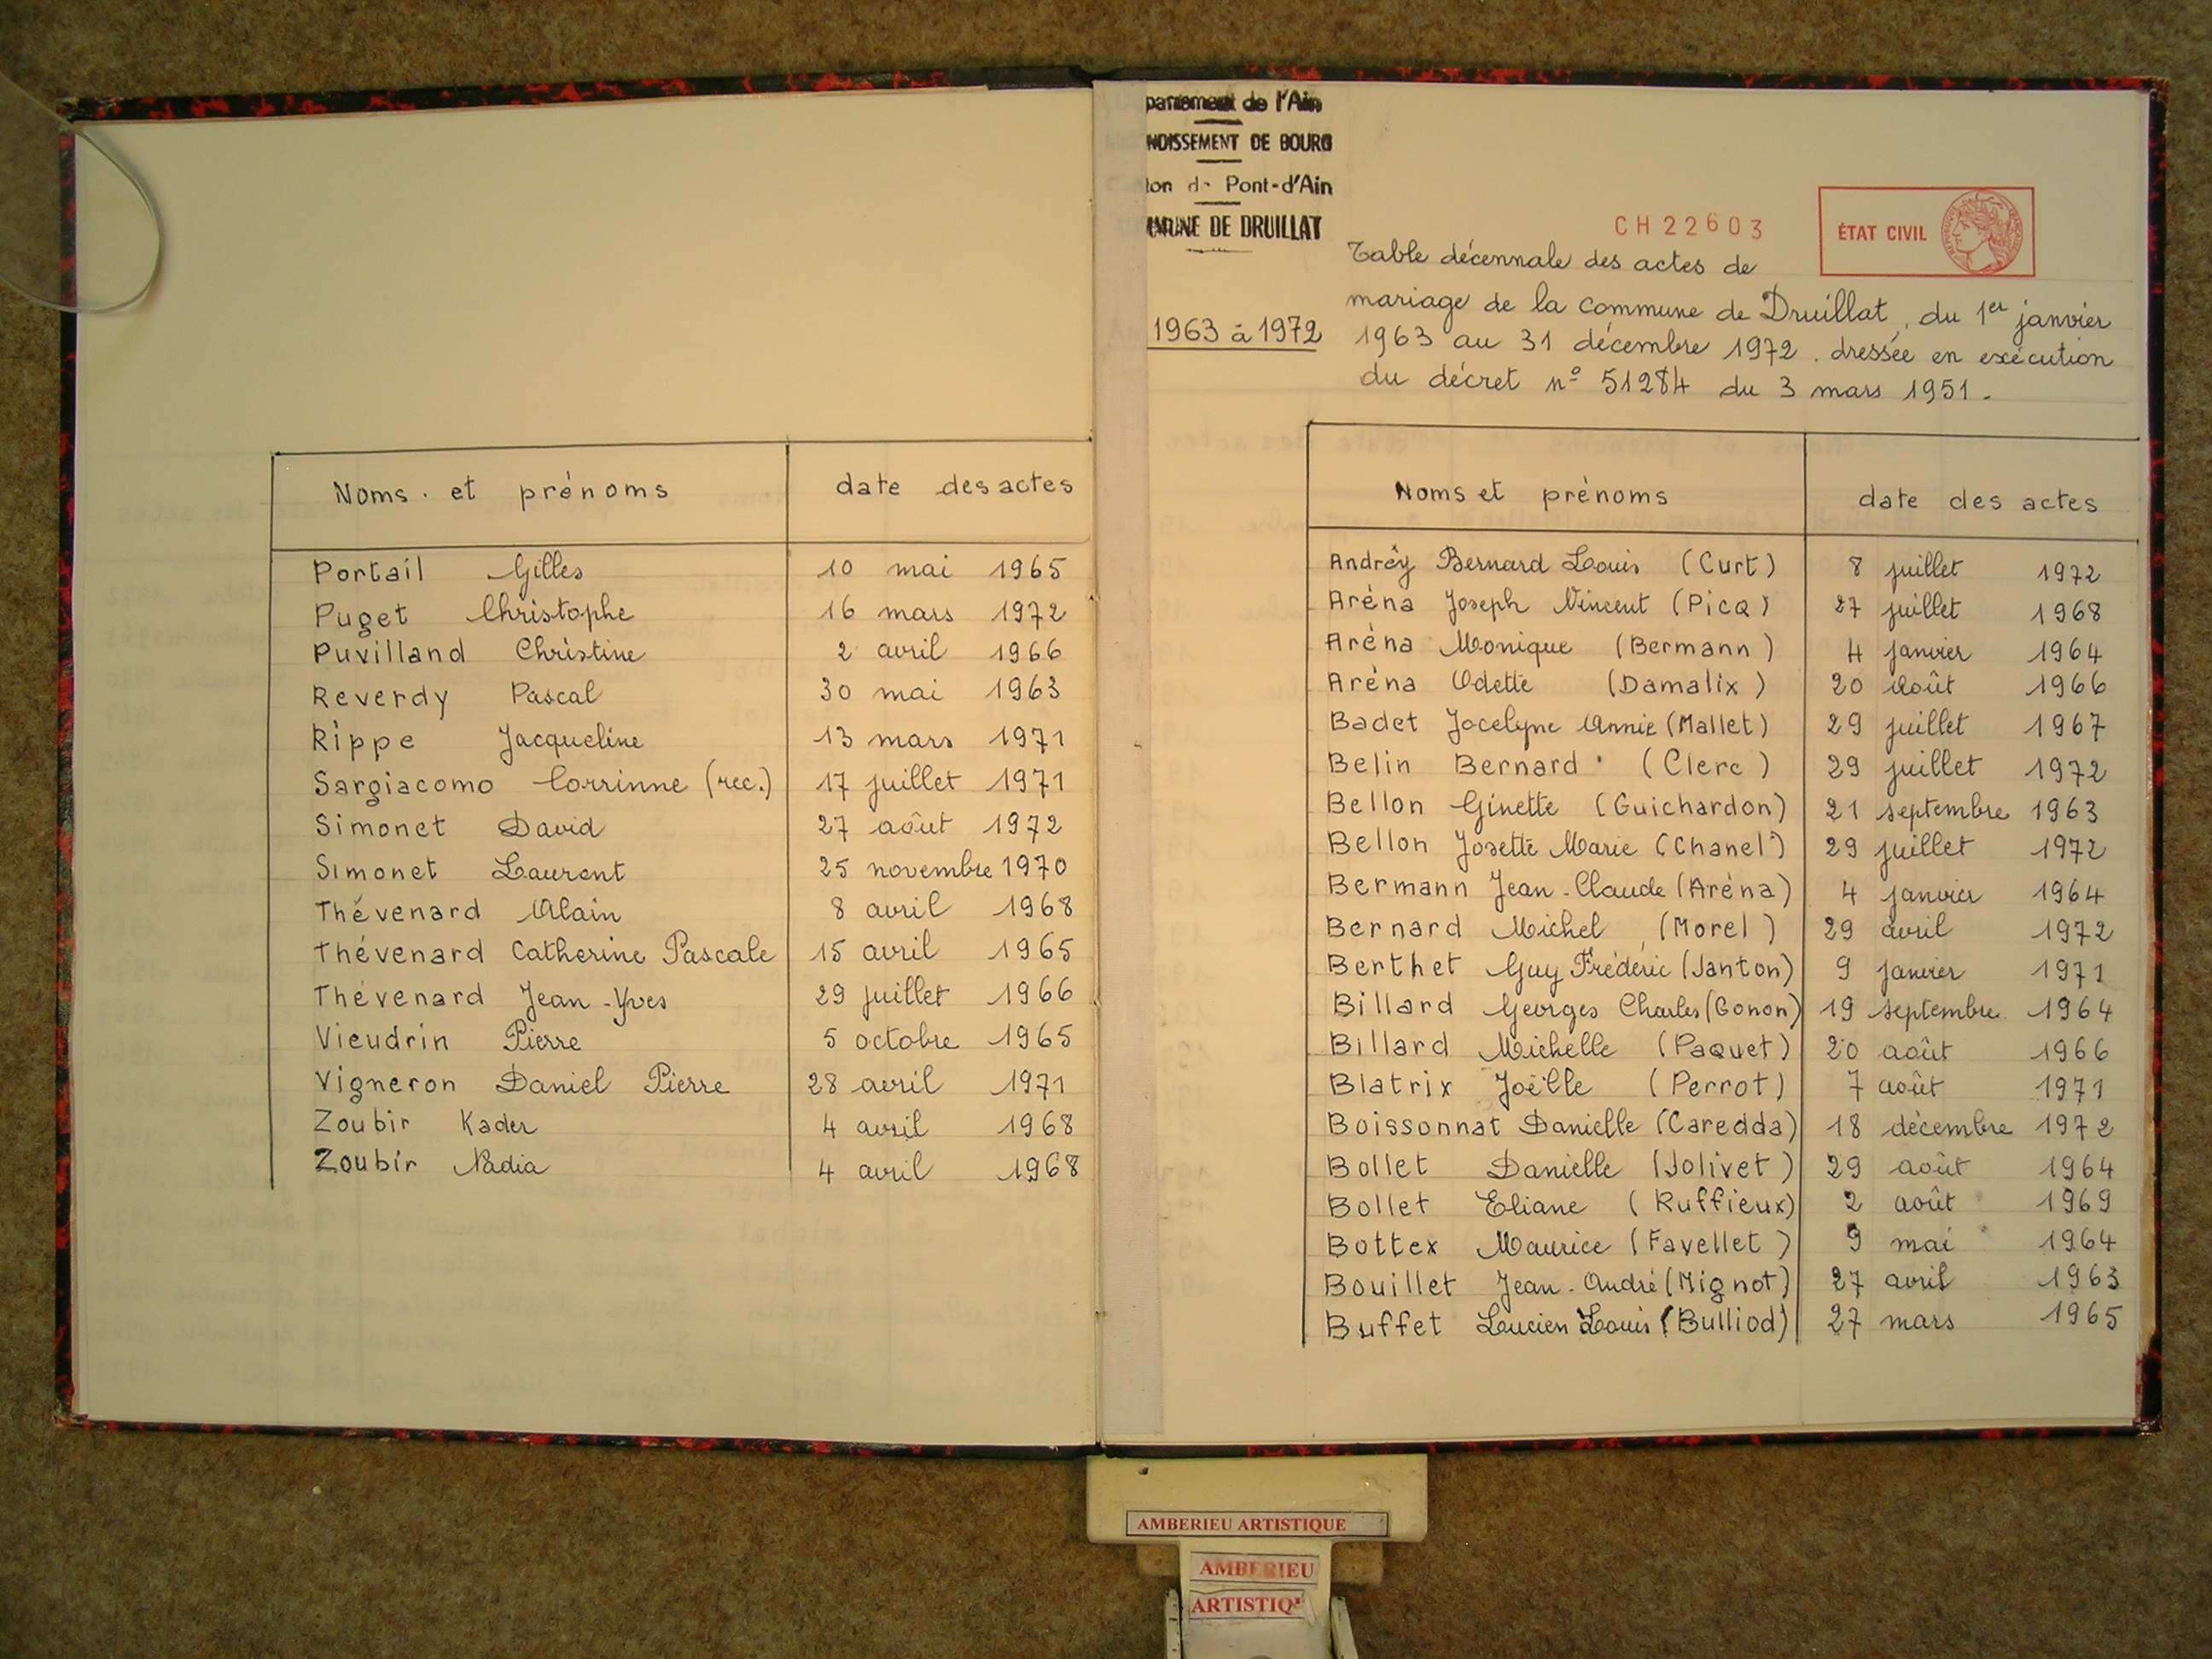 Noms et prénoms date des actes
Portail Gilles 10 mai 1965
Puget Christophe 16 mars 1972
Puvilland Christine 2 avril 1966
Reverdy Pascal 30 mai 1963
Rippe Jacqueline 13 mars 1971
Sargiacomo Corrinne (rec.) 17 juillet 1971
Simonet David 27 août 1972
Simonet Laurent 25 novembre 1970
Thévenard Alain 8 avril 1968
Thévenard Catherine Pascale 15 avril 1965
Thévenard Jean-Yves 29 juillet 1966
Vieudrin Pierre 5 octobre 1965
Vigneron Daniel Pierre 28 avril 1971
Zoubir Kader 4 avril 1968
Zoubir Nadia 4 avril 1968
partement de l'Ain
NDISSEMENT DE BOURG
ton de Pont-d'Ain
MUNE DE DRUILLAT
CH22603
ÉTAT CIVIL
1963 à 1972
Table décennale des actes de
mariage de la commune de Druillat, du 1er janvier
1963 au 31 décembre 1972. dressée en exécution
du décret n° 51284 du 3 mars 1951.
Noms et prénoms date des actes
Andréy Bernard Louis (Curt) 8 juillet 1972
Aréna Joseph Vincent (Picq) 27 juillet 1968
Aréna Monique (Bermann) 4 janvier 1964
Aréna Odette (Damalix) 20 Août 1966
Badet Jocelyne Annie (Mallet) 29 juillet 1967
Belin Bernard (Clerc) 29 juillet 1972
Bellon Ginette (Guichardon) 21 septembre 1963
Bellon Josette Marie (Chanel) 29 juillet 1972
Bermann Jean-Claude (Aréna) 4 janvier 1964
Bernard Michel (Morel) 29 avril 1972
Berthet Guy Frédéric (Janton) 9 janvier 1971
Billard Georges Charles (Gonon) 19 septembre 1964
Billard Michelle (Paquet) 20 août 1966
Blatrix Joëlle (Perrot) 7 août 1971
Boissonnat Danielle (Caredda) 18 décembre 1972
Bollet Danielle (Jolivet) 29 août 1964
Bollet Eliane (Ruffieux) 2 août 1969
Bottex Maurice (Favellet) 9 mai 1964
Bouillet Jean-André (Mignot) 27 avril 1963
Buffet Lucien Louis (Bulliod) 27 mars 1965
AMBERIEU ARTISTIQUE
AMBERIEU
ARTISTIQ